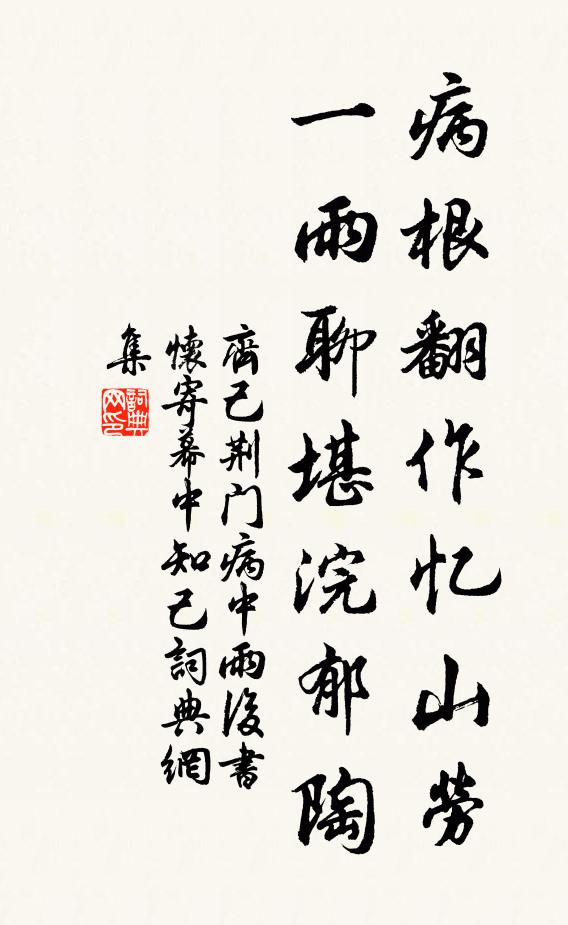 病根翻作忆山勞
一雨聊堪浣郁陶
齊己荆门病中雨後書
懷寄幕中知己詞典網
集
詞典网印